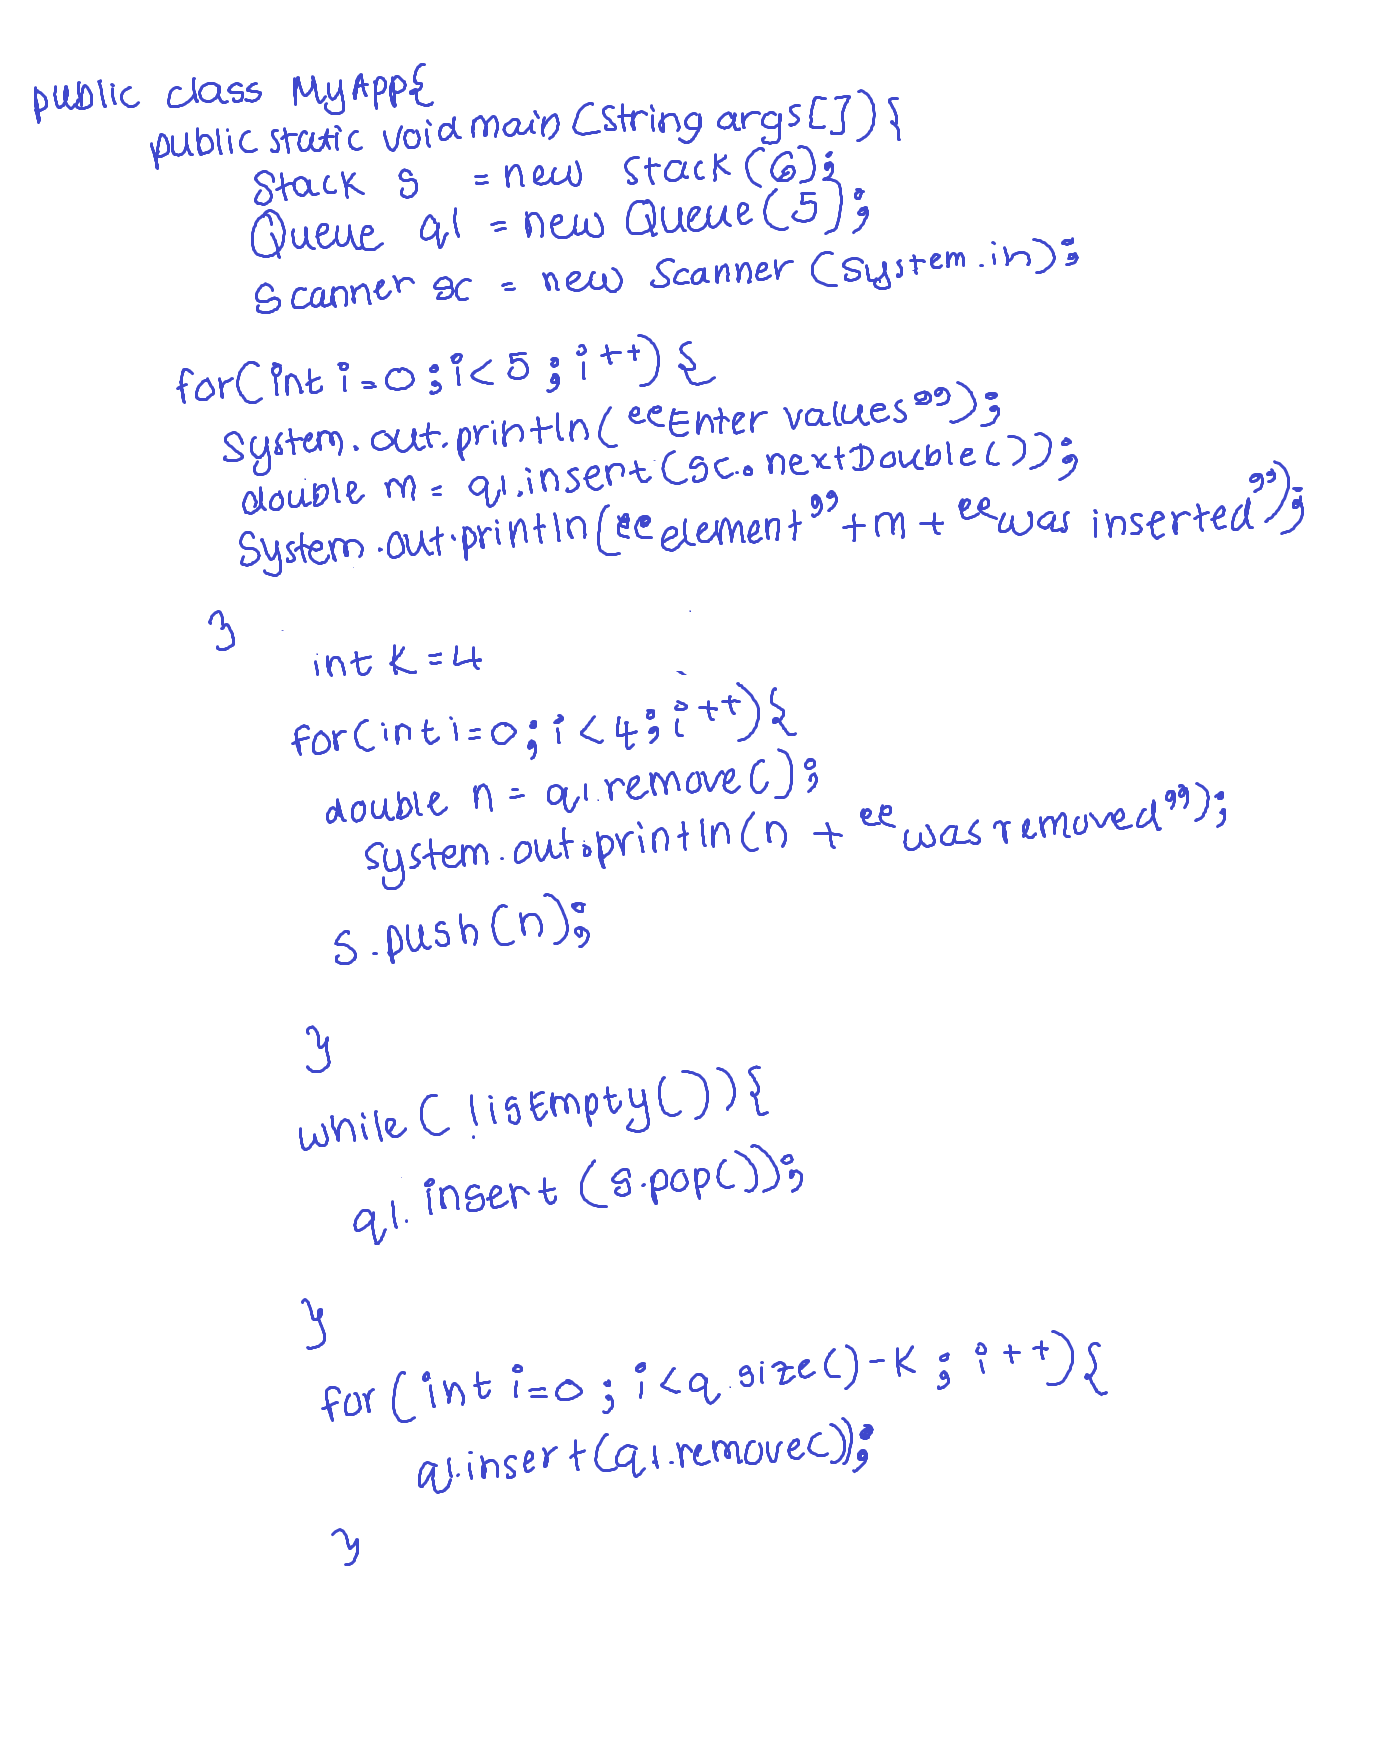 public class MyApp{
public static void main (String args[]) {
Stack s = new Stack (6);
Queue q1 = new Queue (5);
Scanner sc = new Scanner (System.in);
for(int i=0;i<5;i++) {
System.out.println(“Enter values”);
double m = q1.insert(sc.nextDouble());
System.out.println(“element”+m+“was inserted”);
}
int k=4
for(int i=0;i<4;i++){
double n = q1.remove();
System.out.println(n + “was removed”);
s.push(n);
}
while( !isEmpty()){
q1.insert (s.pop());
}
for(int i=0;i<q.size()-k;i++){
q1.insert(q1.remove());
}